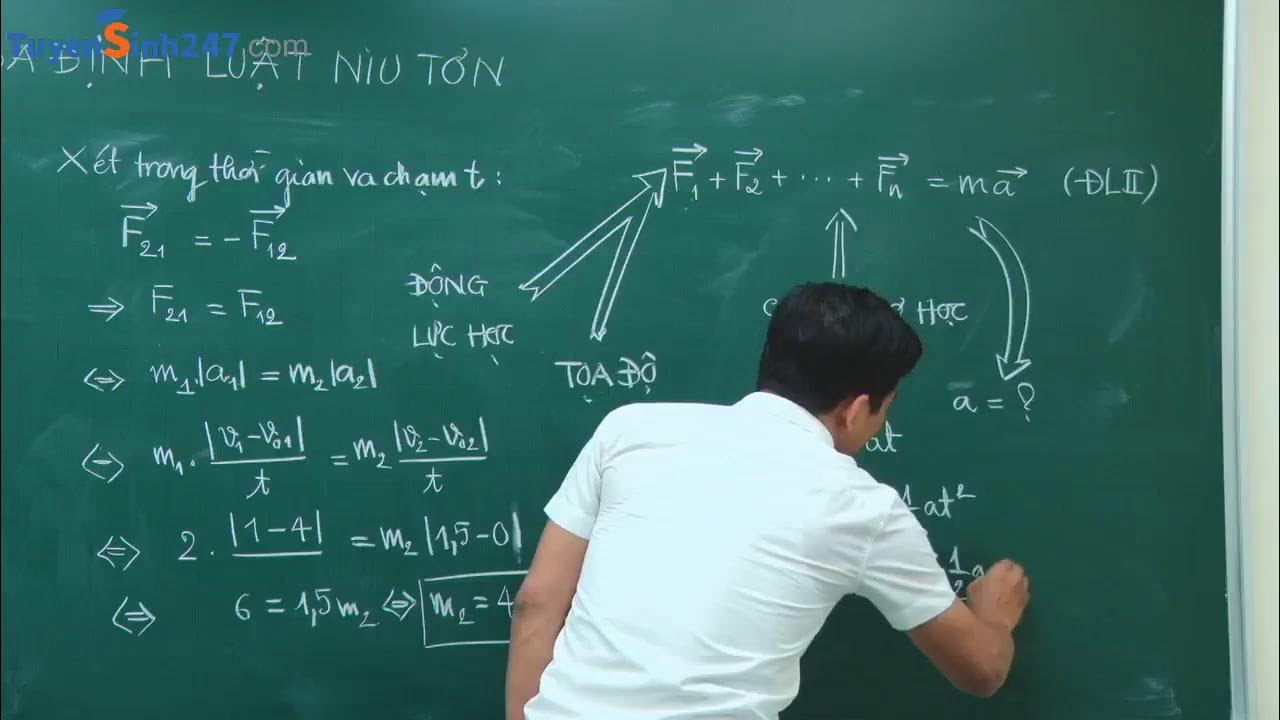 TuyenSinh247.com
BA ĐỊNH LUẬT NIU TƠN
Xét trong thời gian va chạm t:
F⃗₂₁ = - F⃗₁₂
⇒ F₂₁ = F₁₂
⇔ m₁.|a₁| = m₂|a₂|
⇔ m₁. |v₁-v₀₁|/t = m₂ |v₂-v₀₂|/t
⇔ 2. |1-4| = m₂|1,5-0|
⇔ 6 = 1,5m₂ ⇔ m₂ = 4
F⃗₁ + F⃗₂ + ... + F⃗ₙ = ma⃗ (ĐLII)
ĐỘNG
LỰC HỌC
TỌA ĐỘ
HỌC
a = ?
at
½at²
½a